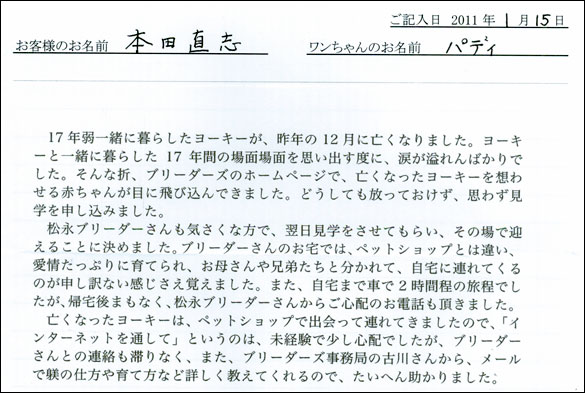 ご記入日 2011 年 1 月 15 日
お客様のお名前 本田直志 ワンちゃんのお名前 パディ
17 年弱一緒に暮らしたヨーキーが、昨年の 12 月に亡くなりました。ヨーキ
ーと一緒に暮らした 17 年間の場面場面を思い出す度に、涙が溢れんばかりで
した。そんな折、ブリーダーズのホームページで、亡くなったヨーキーを想わ
せる赤ちゃんが目に飛び込んできました。どうしても放っておけず、思わず見
学を申し込みました。
松永ブリーダーさんも気さくな方で、翌日見学をさせてもらい、その場で迎
えることに決めました。ブリーダーさんのお宅では、ペットショップとは違い、
愛情たっぷりに育てられ、お母さんや兄弟たちと分かれて、自宅に連れてくる
のが申し訳ない感じさえ覚えました。また、自宅まで車で 2 時間程の旅程でし
たが、帰宅後まもなく、松永ブリーダーさんからご心配のお電話も頂きました。
亡くなったヨーキーは、ペットショップで出会って連れてきましたので、「イ
ンターネットを通して」というのは、未経験で少し心配でしたが、ブリーダー
さんとの連絡も滞りなく、また、ブリーダーズ事務局の古川さんから、メール
で躾の仕方や育て方など詳しく教えてくれるので、たいへん助かりました。